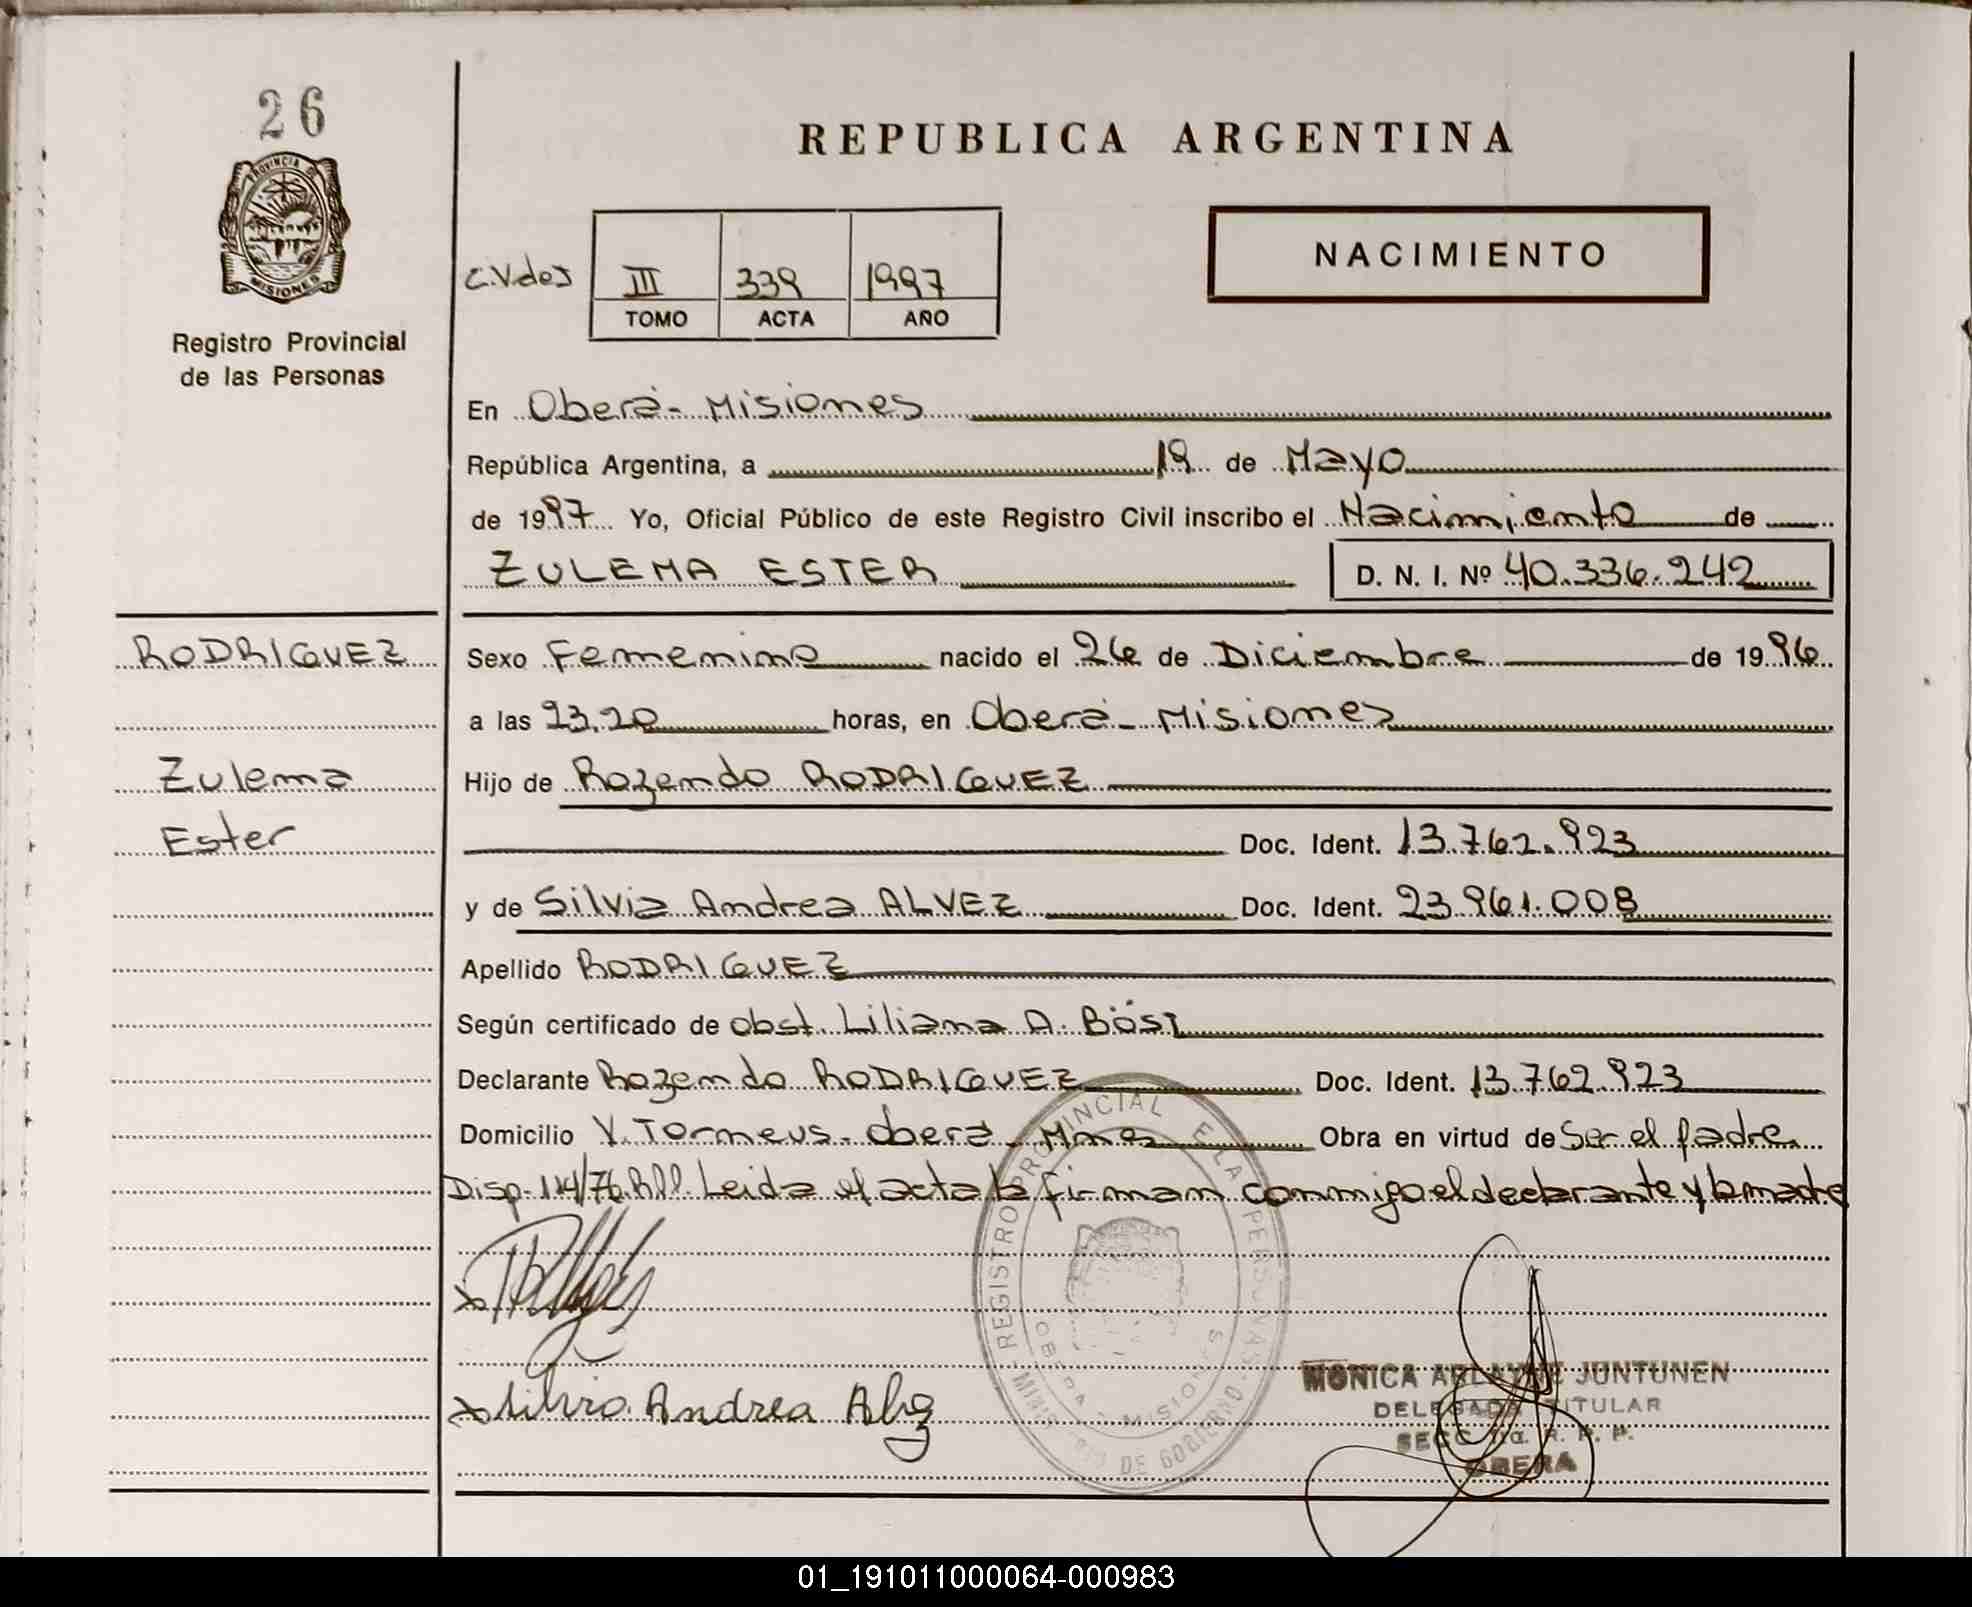 26
PROVINCIA DE
MISIONES
Registro Provincial
de las Personas
REPUBLICA ARGENTINA
NACIMIENTO
III 339 1997
TOMO ACTA AÑO
En Oberá - Misiones
República Argentina, a 19 de Mayo
de 1997 Yo, Oficial Público de este Registro Civil inscribo el Nacimiento de
ZULEMA ESTER D. N. I. Nº 40.336.242
RODRIGUEZ
Zulema
Ester
Sexo Femenino nacido el 26 de Diciembre de 1996
a las 23,20 horas, en Oberá - Misiones
Hijo de Rozendo RODRIGUEZ
Doc. Ident. 13.762.923
y de Silvia Andrea ALVEZ Doc. Ident. 23.961.008
Apellido RODRIGUEZ
Según certificado de obst. Liliana A. Bösi
Declarante Rozendo RODRIGUEZ Doc. Ident. 13.762.923
Domicilio V. Tormeus - Oberá - Mnes Obra en virtud de Ser el padre
Disp. 114/76 Leida el acta la firman conmigo el declarante y la madre
REGISTRO PROVINCIAL DE LAS PERSONAS
MINISTERIO DE GOBIERNO
OBERA - MISIONES
Silvia Andrea Alvez
MONICA ARLAYNE JUNTUNEN
DELEGADA TITULAR
SECC. R. P. P.
OBERA
01_191011000064-000983